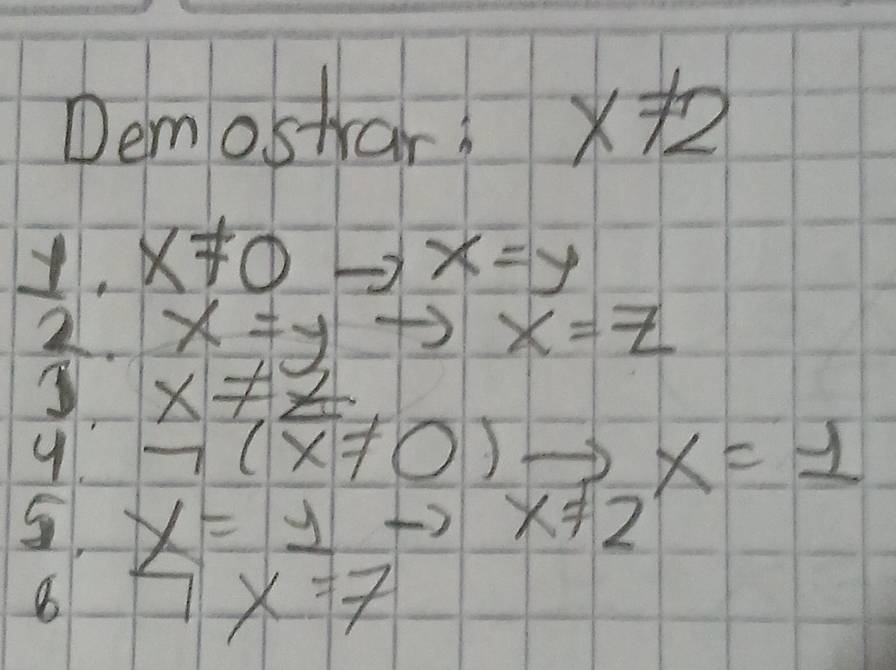 Demostrar: x≠2
1. x≠0 → x=y
2. x=y → x=z
3. x≠z
4. ¬(x≠0) → x=1
5. x=1 → x≠2
6 ¬x=z